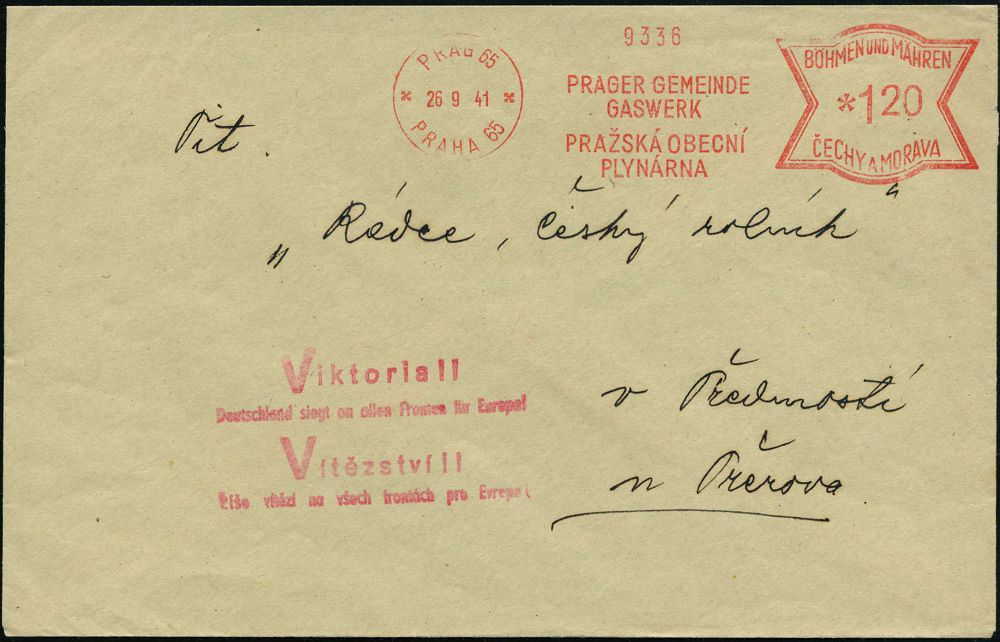 9336
PRAG 65
26 9 41
PRAHA 65
PRAGER GEMEINDE
GASWERK
PRAŽSKÁ OBECNÍ
PLYNÁRNA
BÖHMEN UND MÄHREN
*120
ČECHY A MORAVA
Tit.
„Rádce, český rolník“
Viktoria!!
Deutschland siegt an allen Fronten für Europa!
Vítězství!!
Říše vítězí na všech frontách pro Evropu!
v Předmostí
n Přerova